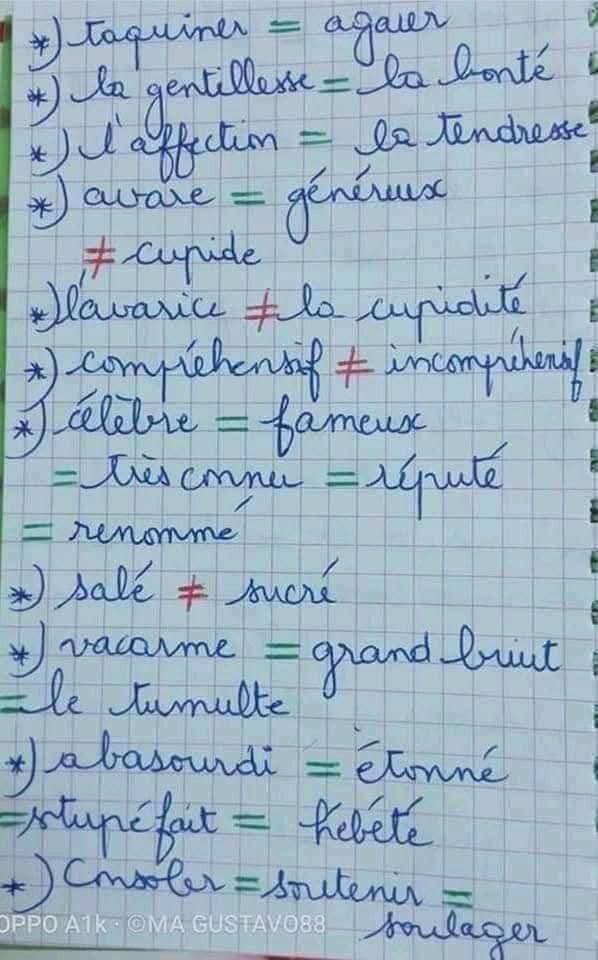 *) taquiner = agacer
*) la gentillesse = la bonté
*) l'affection = la tendresse
*) avare = généreux
≠ cupide
*) l'avarice ≠ la cupidité
*) compréhensif ≠ incompréhensif
*) célèbre = fameux
= très connu = réputé
= renommé
*) salé ≠ sucré
*) vacarme = grand bruit
= le tumulte
*) abasourdi = étonné
= stupéfait = hébété
*) Consoler = soutenir =
soulager
OPPO A1k · ©MA GUSTAVO88